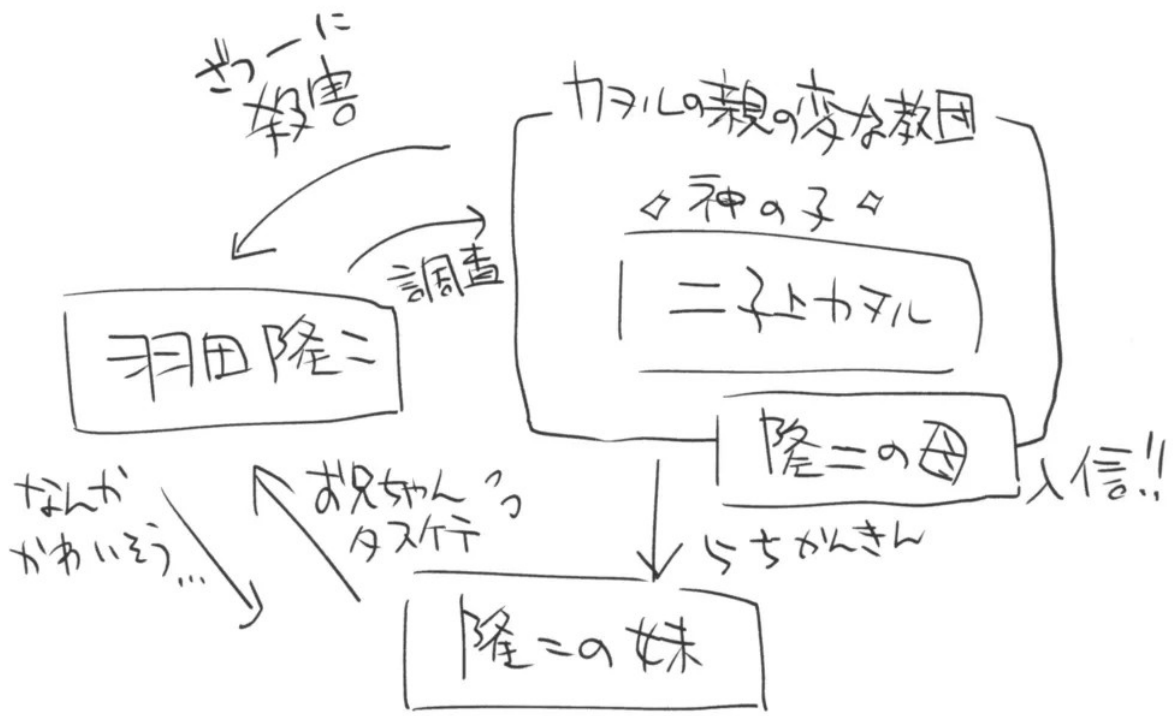 ざつーに
殺害
カヲルの親の変な教団
神の子
調査
二子上カヲル
羽田隆二
隆二の母
入信!!
なんか
かわいそう…
お兄ちゃん
タスケテ
らちかんきん
隆二の妹